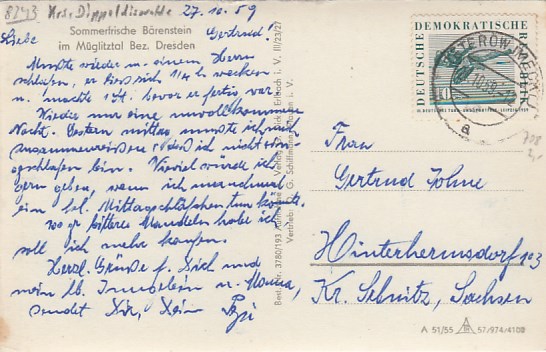 8243 Krs. Dippoldiswalde 27.10.59
Sommerfrische Bärenstein
im Müglitztal Bez. Dresden
Liebe Gertrud!
Musste wieder m. einem Herrn
schlafen, er liess sich 1/4 wecken
u. machte 1 St. bevor er fertig war.
Wieder nur eine unvollkommene
Nacht. Gestern mittag musste ich mich
zusammenreissen dass ich nicht ein-
geschlafen bin. Wieviel würde ich
gern geben, wenn ich manchmal
ein Mittagschläfchen tun könnte.
100 gr bittere Mandeln habe ich,
soll ich mehr kaufen.
Herzl. Grüsse f. Dich und
mein lb. u. Mama,
sendet Dir, Dein
Best.-Nr. 3780/193 III/23/27
DEUTSCHE DEMOKRATISCHE REPUBLIK
10
a
Frau
Gertrud Johne
Hinterhermsdorf 123
Kr. Sebnitz, Sachsen
A 51/55 57/974/4108